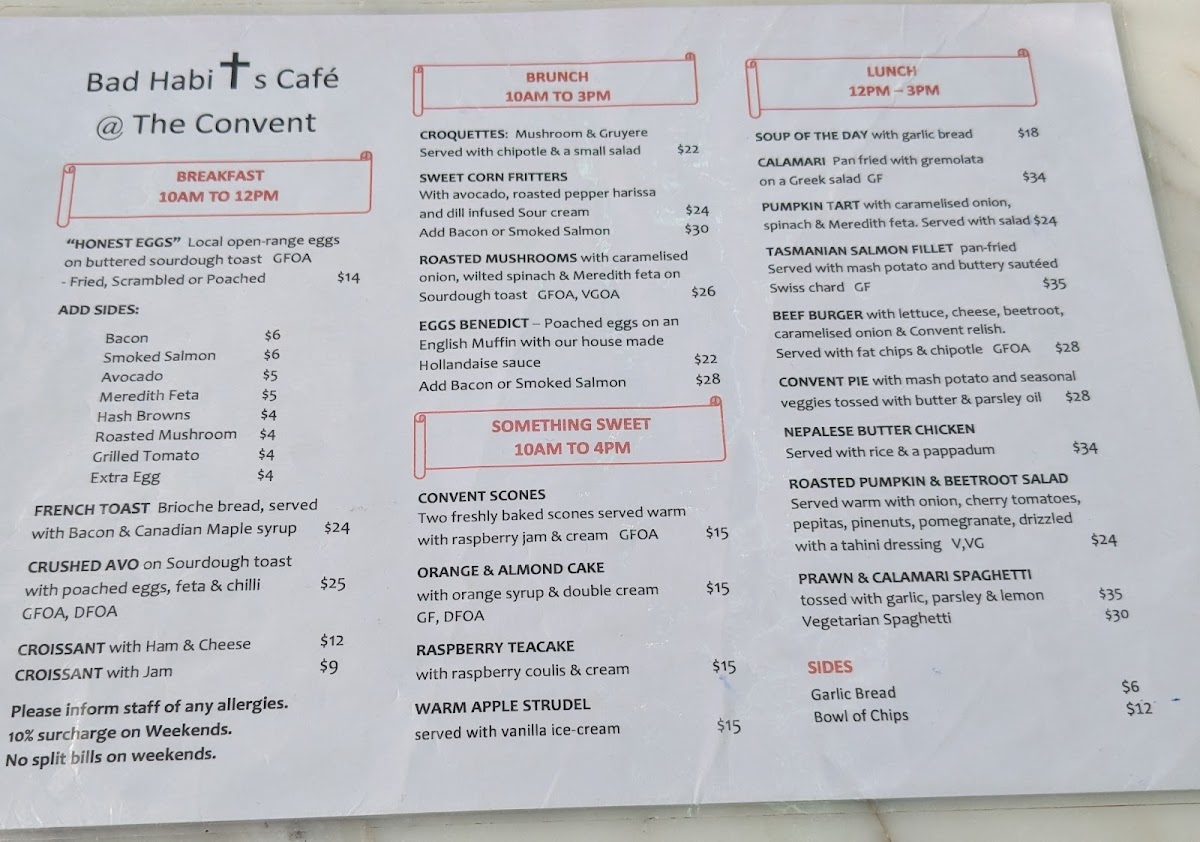 Bad Habi✝s Café
@ The Convent
BREAKFAST
10AM TO 12PM
“HONEST EGGS” Local open-range eggs
on buttered sourdough toast GFOA
- Fried, Scrambled or Poached $14
ADD SIDES:
Bacon $6
Smoked Salmon $6
Avocado $5
Meredith Feta $5
Hash Browns $4
Roasted Mushroom $4
Grilled Tomato $4
Extra Egg $4
FRENCH TOAST Brioche bread, served
with Bacon & Canadian Maple syrup $24
CRUSHED AVO on Sourdough toast
with poached eggs, feta & chilli $25
GFOA, DFOA
CROISSANT with Ham & Cheese $12
CROISSANT with Jam $9
Please inform staff of any allergies.
10% surcharge on Weekends.
No split bills on weekends.
BRUNCH
10AM TO 3PM
CROQUETTES: Mushroom & Gruyere
Served with chipotle & a small salad $22
SWEET CORN FRITTERS
With avocado, roasted pepper harissa
and dill infused Sour cream $24
Add Bacon or Smoked Salmon $30
ROASTED MUSHROOMS with caramelised
onion, wilted spinach & Meredith feta on
Sourdough toast GFOA, VGOA $26
EGGS BENEDICT – Poached eggs on an
English Muffin with our house made
Hollandaise sauce $22
Add Bacon or Smoked Salmon $28
SOMETHING SWEET
10AM TO 4PM
CONVENT SCONES
Two freshly baked scones served warm
with raspberry jam & cream GFOA $15
ORANGE & ALMOND CAKE
with orange syrup & double cream $15
GF, DFOA
RASPBERRY TEACAKE
with raspberry coulis & cream $15
WARM APPLE STRUDEL
served with vanilla ice-cream $15
LUNCH
12PM – 3PM
SOUP OF THE DAY with garlic bread $18
CALAMARI Pan fried with gremolata
on a Greek salad GF $34
PUMPKIN TART with caramelised onion,
spinach & Meredith feta. Served with salad $24
TASMANIAN SALMON FILLET pan-fried
Served with mash potato and buttery sautéed
Swiss chard GF $35
BEEF BURGER with lettuce, cheese, beetroot,
caramelised onion & Convent relish.
Served with fat chips & chipotle GFOA $28
CONVENT PIE with mash potato and seasonal
veggies tossed with butter & parsley oil $28
NEPALESE BUTTER CHICKEN
Served with rice & a pappadum $34
ROASTED PUMPKIN & BEETROOT SALAD
Served warm with onion, cherry tomatoes,
pepitas, pinenuts, pomegranate, drizzled
with a tahini dressing V,VG $24
PRAWN & CALAMARI SPAGHETTI
tossed with garlic, parsley & lemon $35
Vegetarian Spaghetti $30
SIDES
Garlic Bread $6
Bowl of Chips $12